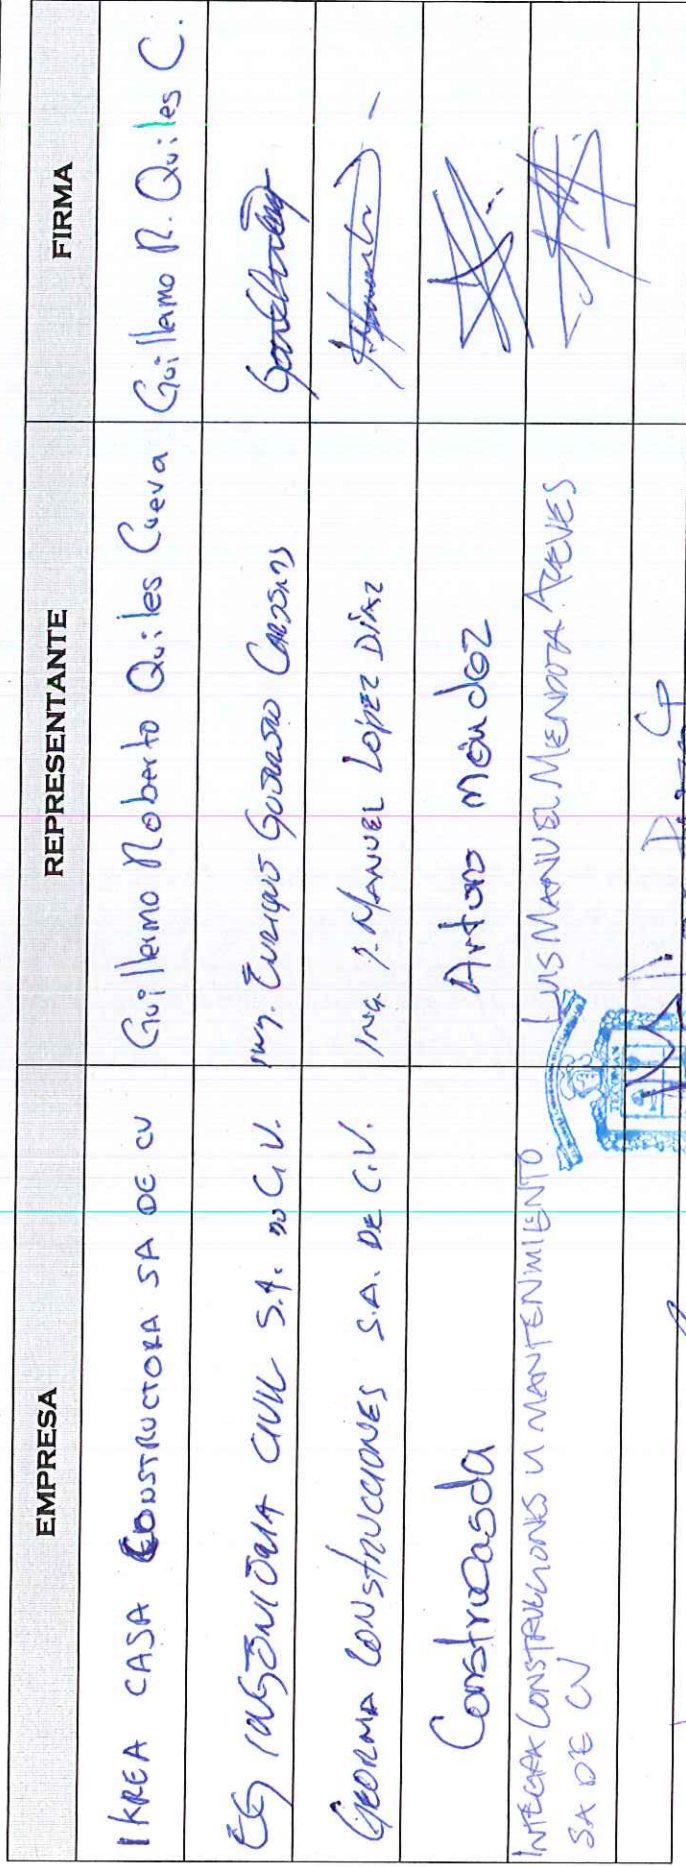 EMPRESA REPRESENTANTE FIRMA
IKREA CASA CONSTRUCTORA SA DE CV Guillermo Roberto Quiles Cueva Guillermo R. Quiles C.
EG INGENIERIA CIVIL S.A. DE C.V. Ing. Enrique
GEORMA CONSTRUCCIONES S.A. DE C.V. Ing. J. MANUEL LÓPEZ DÍAZ
Construcasda Arturo Méndez
INTEGRA CONSTRUCCIONES Y MANTENIMIENTO LUIS MANUEL MENDOZA ACEVES
SA DE CV